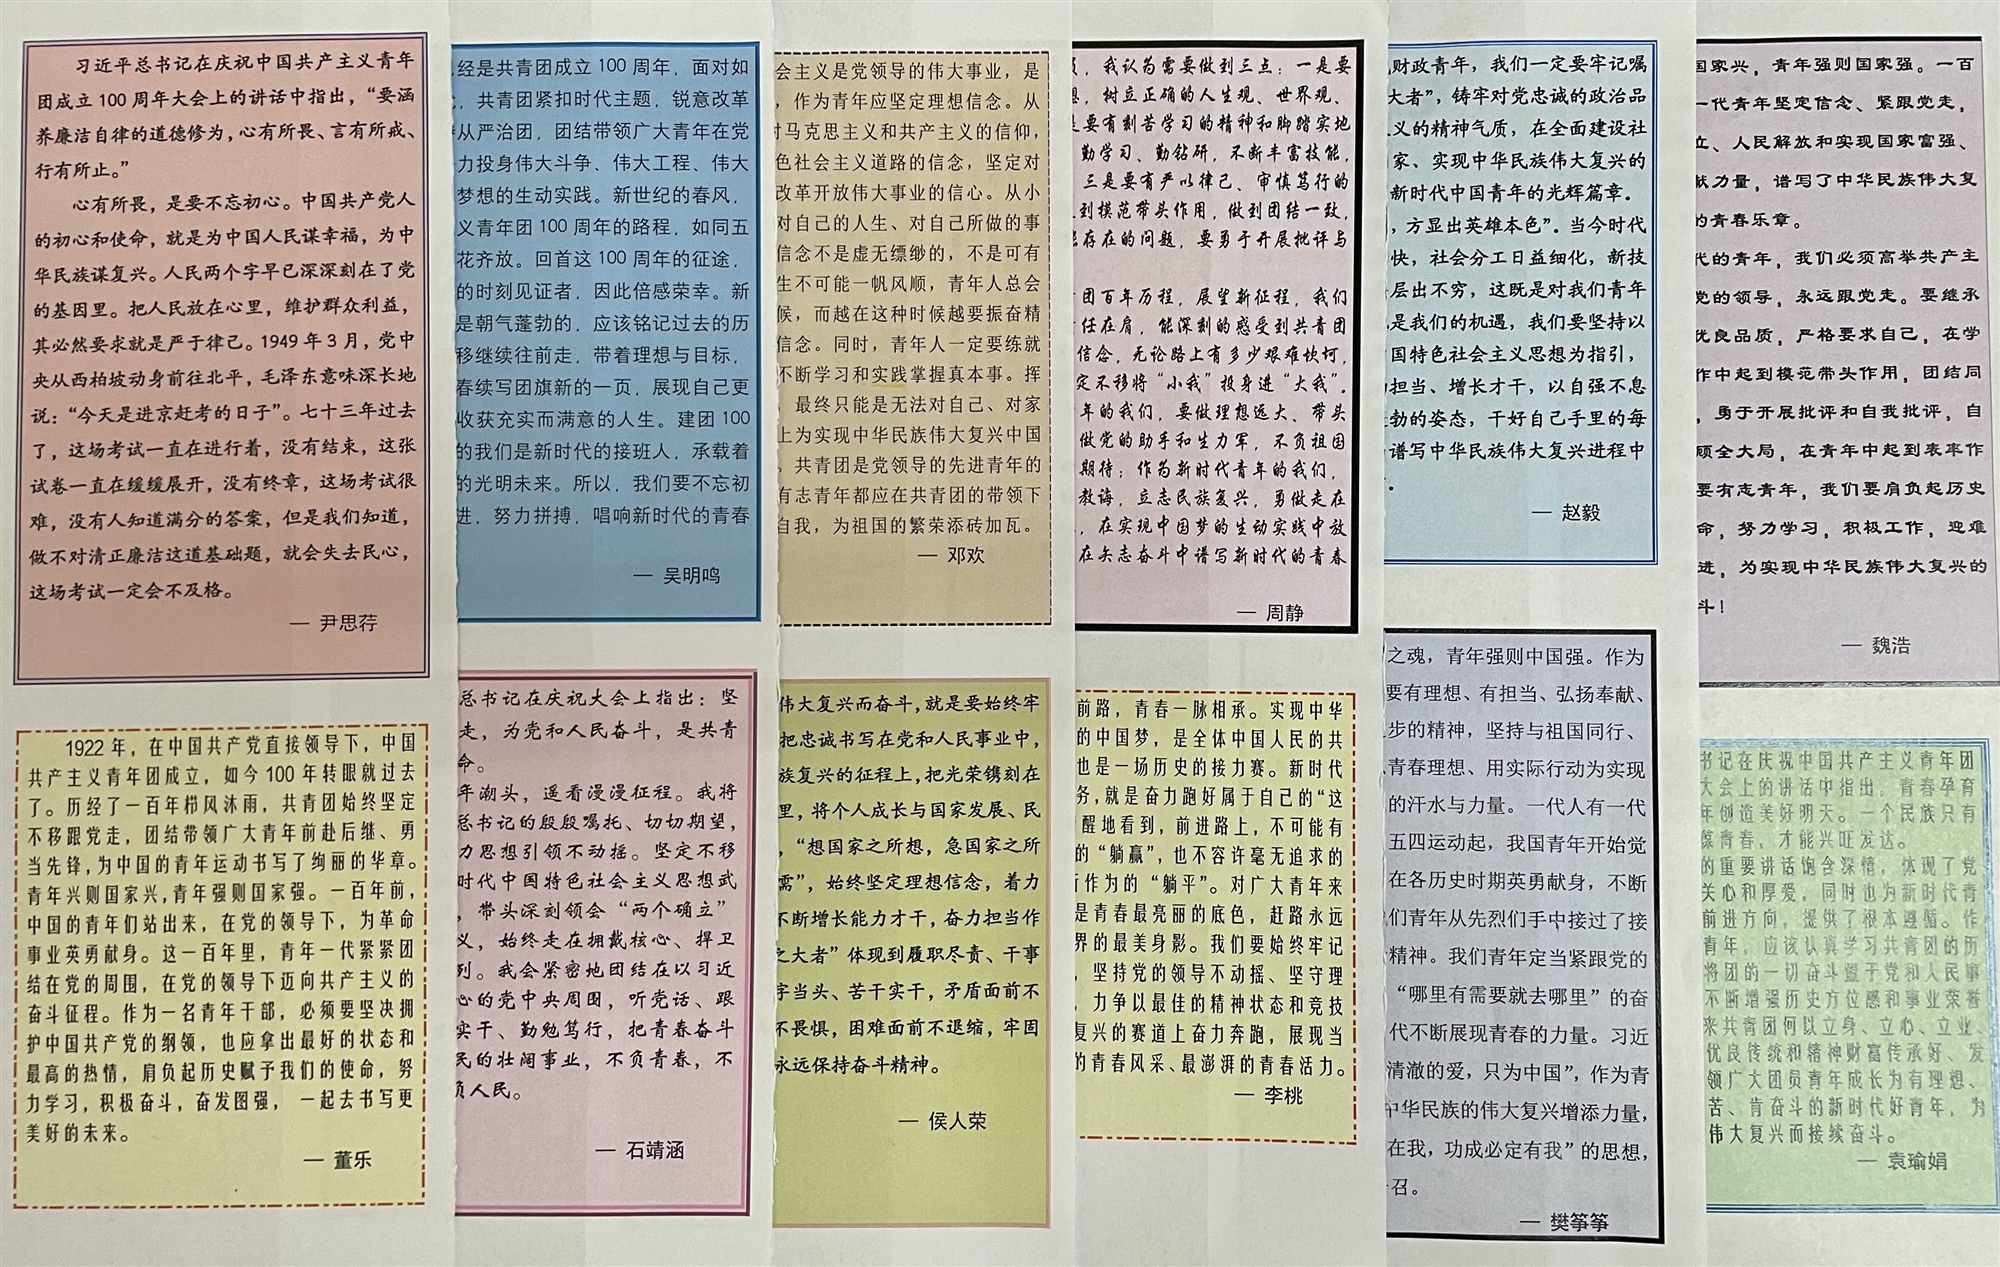 习近平总书记在庆祝中国共产主义青年
团成立100周年大会上的讲话中指出，“要涵
养廉洁自律的道德修为，心有所畏、言有所戒、
行有所止。”
心有所畏，是要不忘初心。中国共产党人
的初心和使命，就是为中国人民谋幸福，为中
华民族谋复兴。人民两个字早已深深刻在了党
的基因里。把人民放在心里，维护群众利益，
其必然要求就是严于律己。1949年3月，党中
央从西柏坡动身前往北平，毛泽东意味深长地
说：“今天是进京赶考的日子”。七十三年过去
了，这场考试一直在进行着，没有结束，这张
试卷一直在缓缓展开，没有终章，这场考试很
难，没有人知道满分的答案，但是我们知道，
做不对清正廉洁这道基础题，就会失去民心，
这场考试一定会不及格。
— 尹思荇
1922年，在中国共产党直接领导下，中国
共产主义青年团成立，如今100年转眼就过去
了。历经了一百年栉风沐雨，共青团始终坚定
不移跟党走，团结带领广大青年前赴后继、勇
当先锋，为中国的青年运动书写了绚丽的华章。
青年兴则国家兴，青年强则国家强。一百年前，
中国的青年们站出来，在党的领导下，为革命
事业英勇献身。这一百年里，青年一代紧紧团
结在党的周围，在党的领导下迈向共产主义的
奋斗征程。作为一名青年干部，必须要坚决拥
护中国共产党的纲领，也应拿出最好的状态和
最高的热情，肩负起历史赋予我们的使命，努
力学习，积极奋斗，奋发图强， 一起去书写更
美好的未来。
— 董乐
经是共青团成立100周年，面对如
，共青团紧扣时代主题，锐意改革
从严治团，团结带领广大青年在党
力投身伟大斗争、伟大工程、伟大
梦想的生动实践。新世纪的春风，
义青年团100周年的路程，如同五
花齐放。回首这100周年的征途，
的时刻见证者，因此倍感荣幸。新
是朝气蓬勃的，应该铭记过去的历
移继续往前走，带着理想与目标，
春续写团旗新的一页，展现自己更
收获充实而满意的人生。建团100
的我们是新时代的接班人，承载着
的光明未来。所以，我们要不忘初
进，努力拼搏，唱响新时代的青春
— 吴明鸣
总书记在庆祝大会上指出：坚
走，为党和人民奋斗，是共青
命。
年潮头，遥看漫漫征程。我将
总书记的殷殷嘱托、切切期望，
力思想引领不动摇。坚定不移
时代中国特色社会主义思想武
，带头深刻领会“两个确立”
义，始终走在拥戴核心、捍卫
列。我会紧密地团结在以习近
心的党中央周围，听党话、跟
实干、勤勉笃行，把青春奋斗
民的壮阔事业，不负青春，不
负人民。
— 石靖涵
会主义是党领导的伟大事业，是
，作为青年应坚定理想信念。从
对马克思主义和共产主义的信仰，
色社会主义道路的信念，坚定对
改革开放伟大事业的信心。从小
对自己的人生、对自己所做的事
信念不是虚无缥缈的，不是可有
生不可能一帆风顺，青年人总会
候，而越在这种时候越要振奋精
信念。同时，青年人一定要练就
不断学习和实践掌握真本事。挥
，最终只能是无法对自己、对家
上为实现中华民族伟大复兴中国
。共青团是党领导的先进青年的
有志青年都应在共青团的带领下
自我，为祖国的繁荣添砖加瓦。
— 邓欢
伟大复兴而奋斗，就是要始终牢
把忠诚书写在党和人民事业中，
族复兴的征程上，把光荣镌刻在
里，将个人成长与国家发展、民
，“想国家之所想，急国家之所
需”，始终坚定理想信念，着力
不断增长能力才干，奋力担当作
之大者”体现到履职尽责、干事
字当头、苦干实干，矛盾面前不
不畏惧，困难面前不退缩，牢固
永远保持奋斗精神。
— 侯人荣
，我认为需要做到三点：一是要
想，树立正确的人生观、世界观、
是要有刻苦学习的精神和脚踏实地
勤学习、勤钻研，不断丰富技能，
三是要有严以律己、审慎笃行的
到模范带头作用，做到团结一致，
存在的问题，要勇于开展批评与
团百年历程，展望新征程，我们
任在肩，能深刻的感受到共青团
信念，无论路上有多少艰难坎坷，
定不移将“小我”投身进“大我”。
年的我们，要做理想远大、带头
做党的助手和生力军，不负祖国
期待；作为新时代青年的我们，
教诲，立志民族复兴，勇做走在
，在实现中国梦的生动实践中放
在矢志奋斗中谱写新时代的青春
— 周静
前路，青春一脉相承。实现中华
的中国梦，是全体中国人民的共
也是一场历史的接力赛。新时代
务，就是奋力跑好属于自己的“这
醒地看到，前进路上，不可能有
的“躺赢”，也不容许毫无追求的
所作为的“躺平”。对广大青年来
是青春最亮丽的底色，赶路永远
界的最美身影。我们要始终牢记
，坚持党的领导不动摇、坚守理
，力争以最佳的精神状态和竞技
复兴的赛道上奋力奔跑，展现当
的青春风采、最澎湃的青春活力。
— 李桃
财政青年，我们一定要牢记嘱
大者”，铸牢对党忠诚的政治品
义的精神气质，在全面建设社
家、实现中华民族伟大复兴的
新时代中国青年的光辉篇章。
，方显出英雄本色”。当今时代
快，社会分工日益细化，新技
层出不穷，这既是对我们青年
是我们的机遇，我们要坚持以
国特色社会主义思想为指引，
担当、增长才干，以自强不息
勃的姿态，干好自己手里的每
谱写中华民族伟大复兴进程中
。
— 赵毅
之魂，青年强则中国强。作为
要有理想、有担当、弘扬奉献、
步的精神，坚持与祖国同行、
青春理想、用实际行动为实现
的汗水与力量。一代人有一代
五四运动起，我国青年开始觉
在各历史时期英勇献身，不断
们青年从先烈们手中接过了接
精神。我们青年定当紧跟党的
“哪里有需要就去哪里”的奋
代不断展现青春的力量。习近
清澈的爱，只为中国”，作为青
中华民族的伟大复兴增添力量，
在我，功成必定有我”的思想，
召。
— 樊筝筝
国家兴，青年强则国家强。一百
一代青年坚定信念、紧跟党走，
立、人民解放和实现国家富强、
献力量，谱写了中华民族伟大复
的青春乐章。
代的青年，我们必须高举共产主
党的领导，永远跟党走。要继承
优良品质，严格要求自己，在学
作中起到模范带头作用，团结同
，勇于开展批评和自我批评，自
顾全大局，在青年中起到表率作
要有志青年，我们要肩负起历史
命，努力学习，积极工作，迎难
进，为实现中华民族伟大复兴的
斗！
— 魏浩
书记在庆祝中国共产主义青年团
大会上的讲话中指出，青春孕育
年创造美好明天。一个民族只有
愿青春，才能兴旺发达。
的重要讲话饱含深情，体现了党
关心和厚爱，同时也为新时代青
前进方向，提供了根本遵循。作
青年，应该认真学习共青团的历
将团的一切奋斗置于党和人民事
不断增强历史方位感和事业荣誉
来共青团何以立身、立心、立业、
优良传统和精神财富传承好、发
领广大团员青年成长为有理想、
苦、肯奋斗的新时代好青年，为
伟大复兴而接续奋斗。
— 袁瑜娟